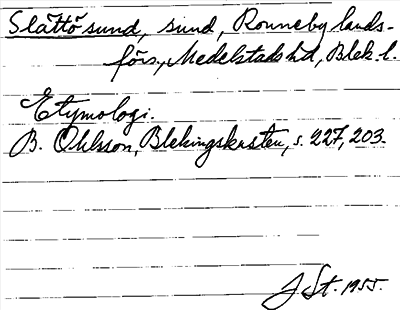 Slättö sund, sund, Ronneby lands-
förs., Medelstads hd, Blek. l.
Etymologi.
B. Ohlsson, Blekingskusten, s. 227, 203.
J. St. 1955.